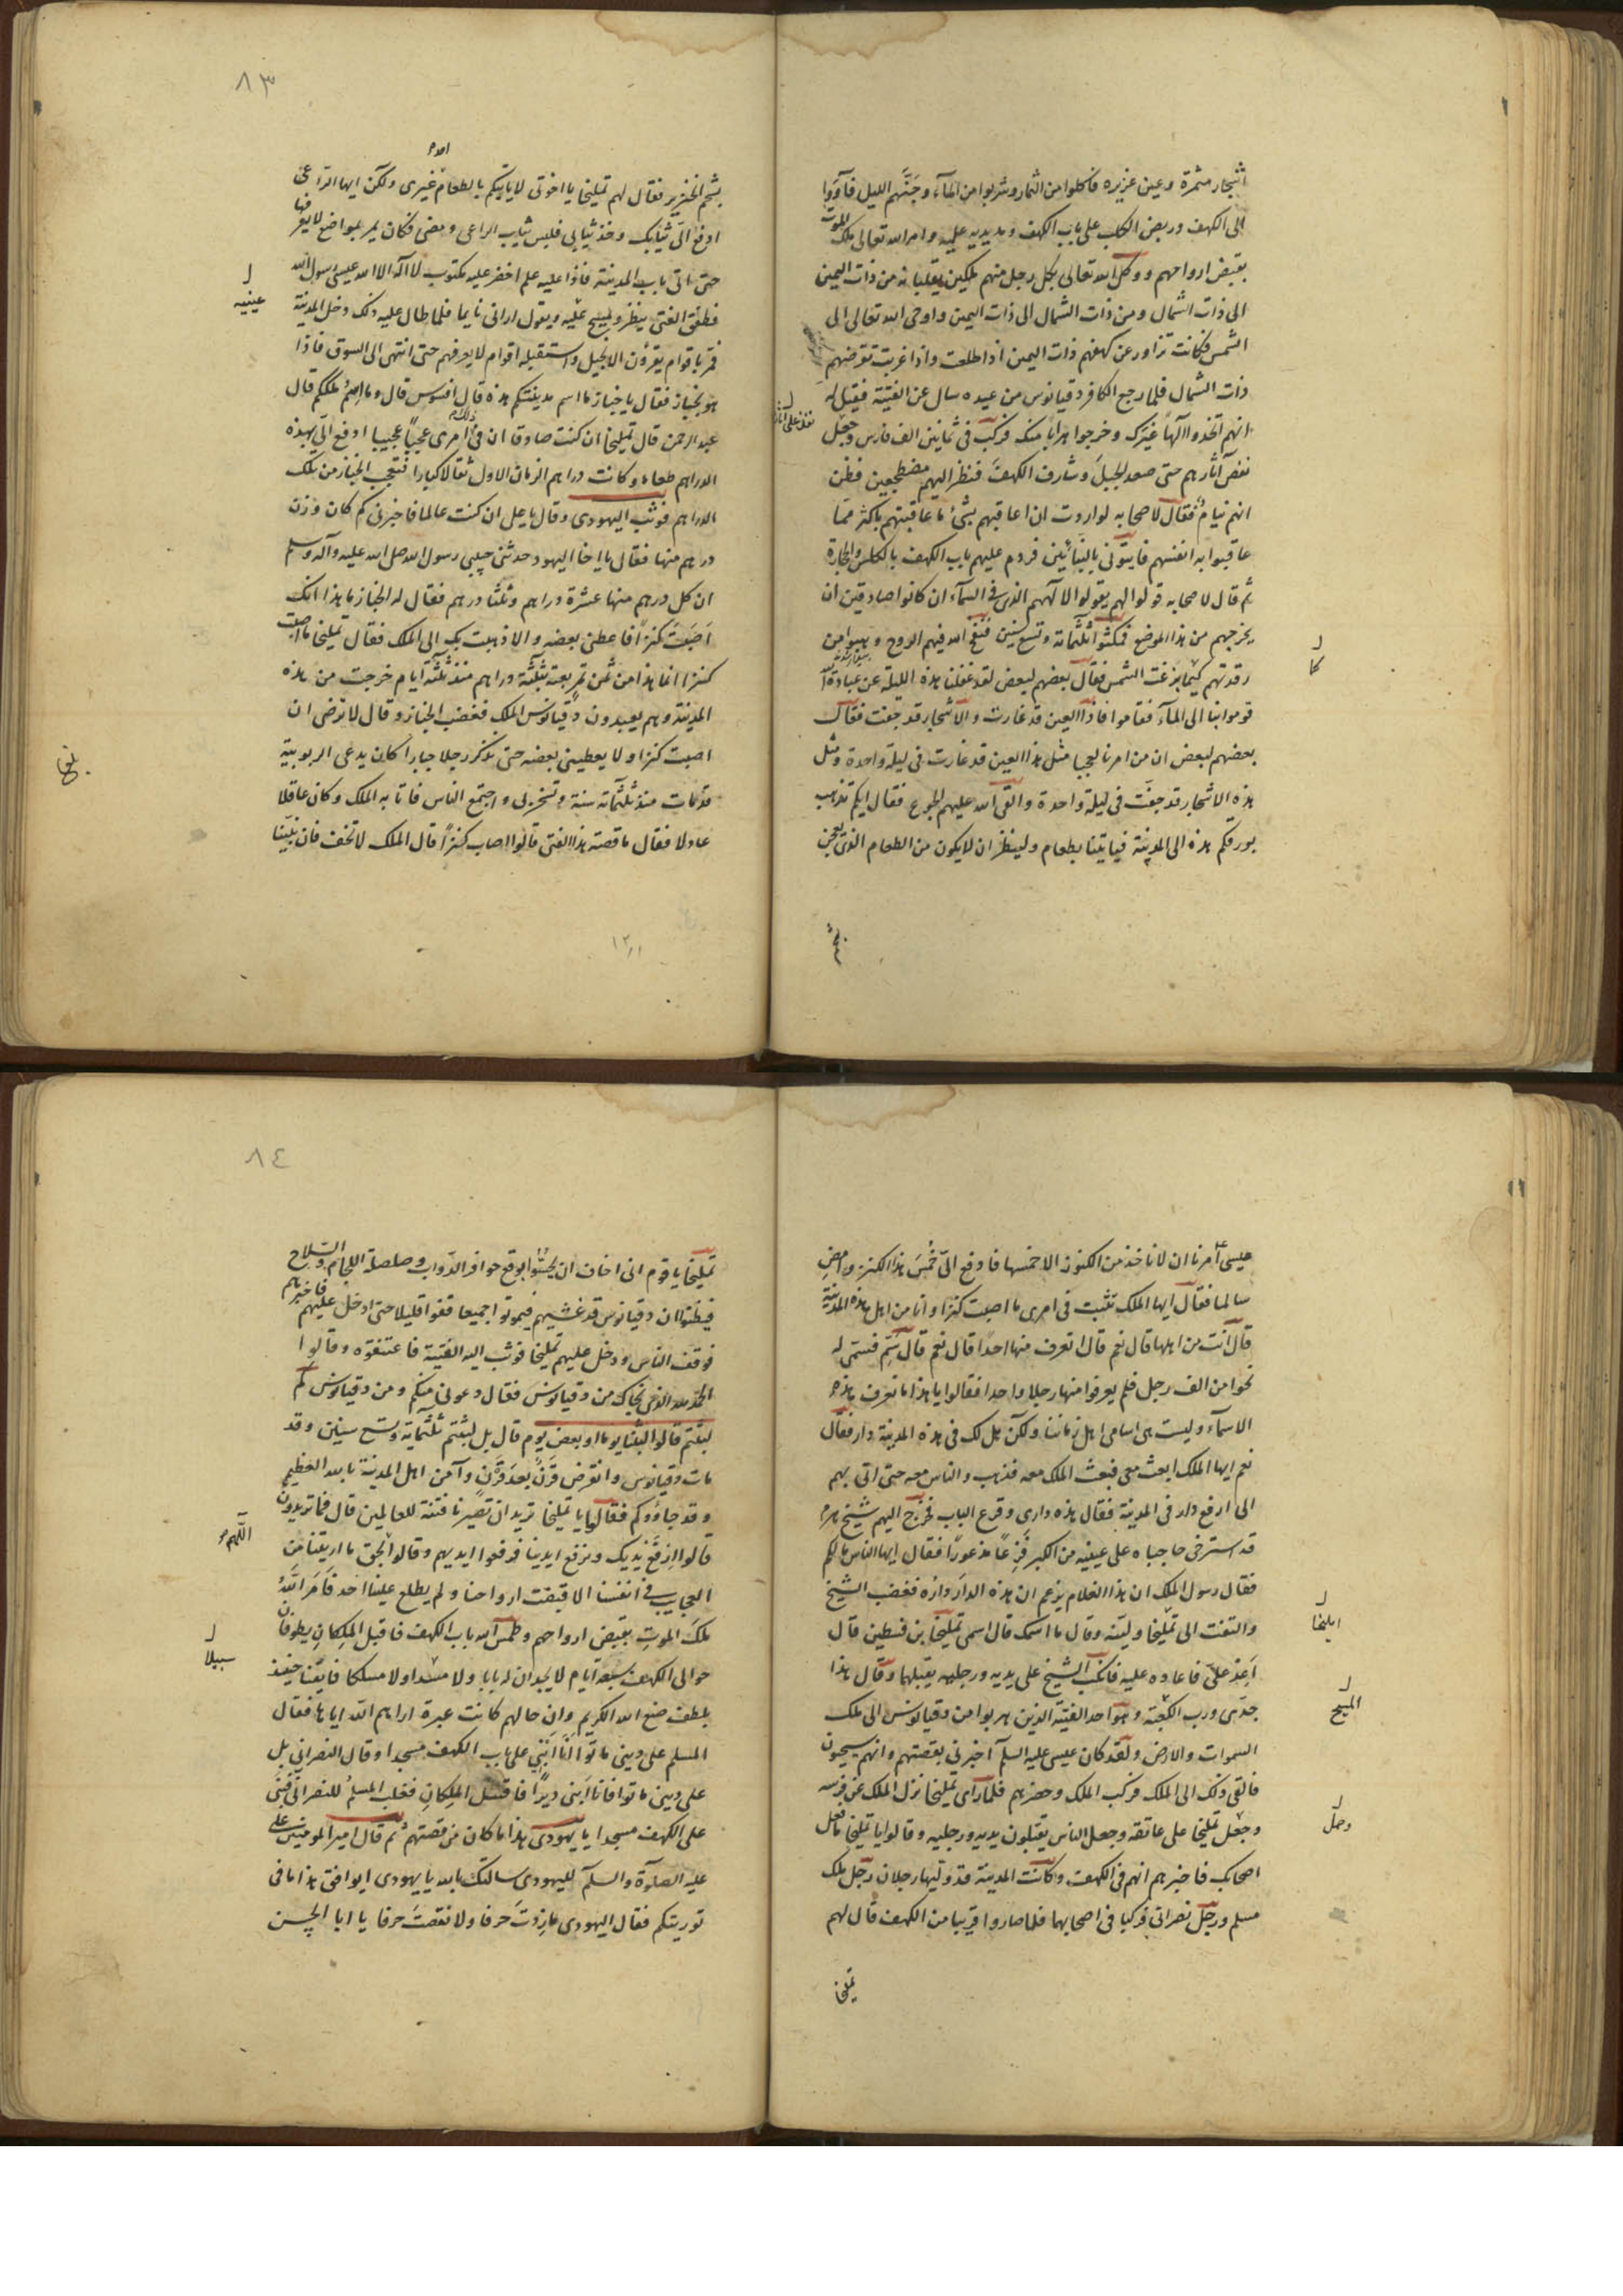 اشجار مثمرة وعين غزيره فاكلوا من الثمار وشربوا من الماء وجنّهم الليل فآووا
الى الكهف وربض الكلب على باب الكهف ومد يديه عليه وامر الله تعالى ملك الموت
بقبض ارواحهم ووكل الله تعالى بكل رجل منهم ملكين يقلبانه من ذات اليمين
الى ذات الشمال ومن ذات الشمال الى ذات اليمين واوحى الله تعالى الى
الشمس فكانت تزاور عن كهفهم ذات اليمين اذا طلعت واذا غربت تقرضهم
ذات الشمال فلما رجع الكافر دقيانوس من عيده سال عن الفتية فقيل له
انهم اتخذوا الها غيرك وخرجوا هرابا منك فركب في ثمانين الف فارس وجعل
يقص آثارهم حتى صعد الجبل وشارف الكهف فنظر اليهم مضطجعين فظن
انهم نيام فقال لاصحابه لو اردت ان اعاقبهم بشئ ما عاقبتهم باكثر مما
عاقبوا به انفسهم فايتوني بالبنائين فردم عليهم باب الكهف بالكلس والحجارة
ثم قال لاصحابه قولوا لهم يقولوا لآلههم الذى فى السمآء ان كانوا صادقين ان
يخرجهم من هذا الموضع فمكثوا ثلثمائة وتسع سنين فنفخ الله فيهم الروح وهبوا من
رقدتهم كما بزغت الشمس فقال بعضهم لبعض لقد غفلنا هذه الليلة عن عبادة الله
قوموا بنا الى المآء فقاموا فاذا العين قد غارت والاشجار قد جفت فقال
بعضهم لبعض ان من امرنا لعجبا مثل هذا العين قد غارت في ليلة واحدة ومثل
هذه الاشجار قد جفت في ليلة واحدة والقى الله عليهم الجوع فقال ايكم يذهب
بورقكم هذه الى المدينة فياتينا بطعام ولينظر ان لايكون من الطعام الذى يعجن
كما
٨٣
بشحم الخنزير فقال لهم تمليخا يا اخوتى لا ياتيكم بالطعام غيرى ولكن ايها الراعى
ادفع الىّ ثيابك وخذ ثيابى فلبس ثياب الراعى ومضى فكان يمر بمواضع لا يعرفها
حتى اتى باب المدينة فاذا عليه علم اخضر عليه مكتوب لا اله الا الله عيسى رسول الله
فطفق الفتى ينظر ويمسح عليه ويقول ارانى نايما فلما طال عليه ذلك دخل المدينة
فمر باقوام يقرؤن الانجيل واستقبله اقوام لا يعرفهم حتى انتهى الى السوق فاذا
هو بخباز فقال يا خباز ما اسم مدينتكم هذه قال افسوس قال وما اسم ملككم قال
عبد الرحمن قال تمليخا ان كنت صادقا ان فى امرى عجبا عجيبا ادفع الىّ بهذه
الدراهم طعاما وكانت دراهم الزمان الاول ثقالا كبارا فتعجب الخباز من تلك
الدراهم فوثب اليهودى وقال يا على ان كنت عالما فاخبرنى كم كان وزن
درهم منها فقال يا اخا اليهود حدثنى حبيبى رسول الله صلى الله عليه وآله وسلم
ان كل درهم منها عشرة دراهم وثلثا درهم فقال له الخباز يا هذا انك
اصبت كنزا فاعطنى بعضه والا ذهبت بك الى الملك فقال تمليخا ما اصبت
كنزا انما هذا من ثمن تمر بعته بثلثة دراهم منذ ثلثة ايام خرجت من هذه
المدينة وهم يعبدون دقيانوس الملك فغضب الخباز وقال لا ترضى ان
اصبت كنزا ولا يعطينى بعضه حتى تذكر رجلا جبارا كان يدعى الربوبية
قد مات منذ ثلثمائة سنة وتسخر بى واجتمع الناس فاتا به الملك وكان عاقلا
عادلا فقال ما قصة هذا الفتى قالوا اصاب كنزا قال الملك لا تخف فان نبينا
عينيه
١٢١١
عيسى امرنا ان لا ناخذ من الكنوز الا خمسها فادفع الىّ خمس هذا الكنز وامض
سالما فقال ايها الملك تثبت فى امرى ما اصبت كنزا وانا من اهل هذه المدينة
قال انت من اهلها قال نعم قال اتعرف منها احدا قال نعم قال سمّ فسمى له
نحوا من الف رجل فلم يعرفوا منها رجلا واحدا فقالوا يا هذا ما نعرف هذه
الاسمآء وليست هى اسامى اهل زماننا ولكن هل لك فى هذه المدينة دار فقال
نعم ايها الملك ابعث معى فبعث الملك معه فذهب والناس معه حتى اتى بهم
الى ارفع دار فى المدينة فقال هذه دارى وقرع الباب فخرج اليهم شيخ هرم
قد استرخى حاجباه على عينيه من الكبر فزعا مذعورا فقال ايها الناس مالكم
فقال رسول الملك ان هذا الغلام يزعم ان هذه الدار داره فغضب الشيخ
والتفت الى تمليخا وليّنه وقال ما اسمك قال اسمى تمليخا بن فسطين قال
اعد علىّ فاعاده عليه فانكب الشيخ على يديه ورجليه يقبلهما وقال هذا
جدى ورب الكعبة وهو احد الفتية الذين هربوا من دقيانوس الى ملك
السموات والارض ولقد كان عيسى عليه السلم اخبرنى بقصتهم وانهم سيحيون
فالقى ذلك الى الملك فركب الملك وحضرهم فلما راى تمليخا نزل الملك عن فرسه
وجعل تمليخا على عاتقه وجعل الناس يقبلون يديه ورجليه وقالوا يا تمليخا ما فعل
اصحابك فاخبرهم انهم فى الكهف وكانت المدينة قد وليها رجلان رجل ملك
مسلم ورجل نصرانى فركبا فى اصحابهما فلما صاروا قريبا من الكهف قال لهم
المسيح
وحمل
تمليخا
٨٤
تمليخا يا قوم انى اخاف ان يحسّوا بوقع حوافر الدواب وصلصلة اللجام والسلاح
فيظنوا ان دقيانوس قد غشيهم فيموتوا جميعا قفوا قليلا حتى ادخل عليهم فاخبرهم
فوقف الناس ودخل عليهم تمليخا فوثب اليه الفتية فاعتنقوه وقالوا
الحمد لله الذى نجاك من دقيانوس فقال دعونى منكم ومن دقيانوس كم
لبثتم قالوا لبثنا يوما او بعض يوم قال بل لبثتم ثلثمائة وتسع سنين وقد
مات دقيانوس وانقرض قرن بعد قرن وآمن اهل المدينة بالله العظيم
وقد جاؤوكم فقالوا يا تمليخا تريد ان تصيرنا فتنة للعالمين قال فما تريدون
قالوا ارفع يديك ونرفع ايدينا فرفعوا ايديهم وقالوا بحق ما اريتنا من
العجايب فى انفسنا الا قبضت ارواحنا ولم يطلع علينا احد فامر الله
ملك الموت بقبض ارواحهم وطمس الله باب الكهف فاقبل الملكان يطوفان
حوالى الكهف سبعة ايام لا يجدان له بابا ولا منفذا ولا مسلكا فايقنا حينئذ
بلطف صنع الله الكريم وان حالهم كانت عبرة اراهم الله اياها فقال
المسلم على دينى ماتوا انا ابنى على باب الكهف مسجدا وقال النصرانى بل
على دينى ماتوا فانا ابنى ديرا فاقتتل الملكان فغلب المسلم للنصرانى فبنى
على الكهف مسجدا يا يهودى هذا ما كان من قصتهم ثم قال امير المومنين على
عليه الصلوة والسلم لليهودى سالتك بالله يا يهودى ايوافق هذا ما فى
توريتكم فقال اليهودى ما زدت حرفا ولا نقصت حرفا يا ابا الحسن
اللهم
سبيلا